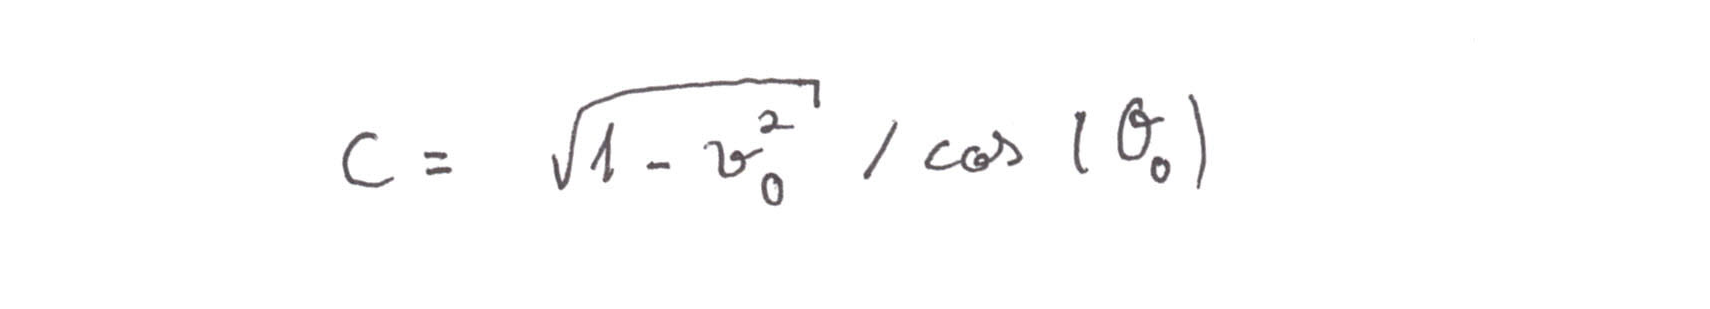 C = √(1 - v₀²) / cos (θ₀)